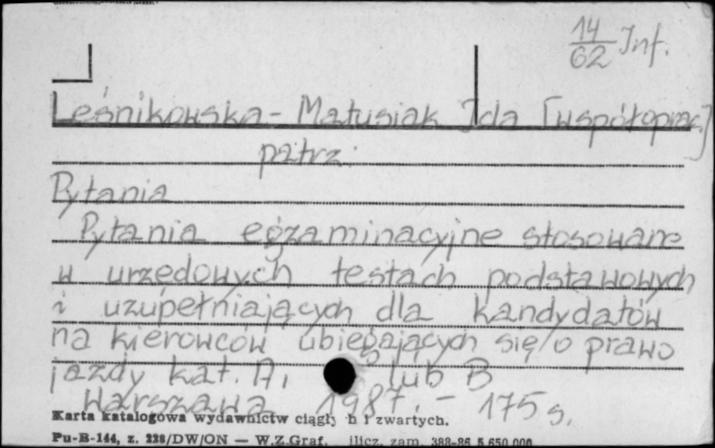 14
62 Inf.
Leśnikowska - Matusiak Ida [współoprac.]
patrz:
Pytania
Pytania egzaminacyjne stosowane
w urzędowych testach podstawowych
i uzupełniających dla kandydatów
na kierowców ubiegających się o prawo
jazdy kat. A, lub B
Warszawa 1987. - 175 s.
Karta katalogowa wydawnictw ciągły h i zwartych.
Pu-B-144, z. 228/DW/ON — W.Z.Graf. zam. 388-86 5.650.000